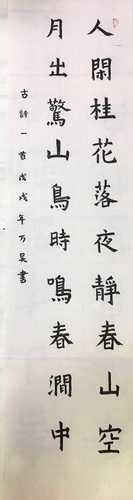 人閑桂花落夜靜春山空
月出驚山鳥時鳴春澗中
古詩一首戊戌年万昊書